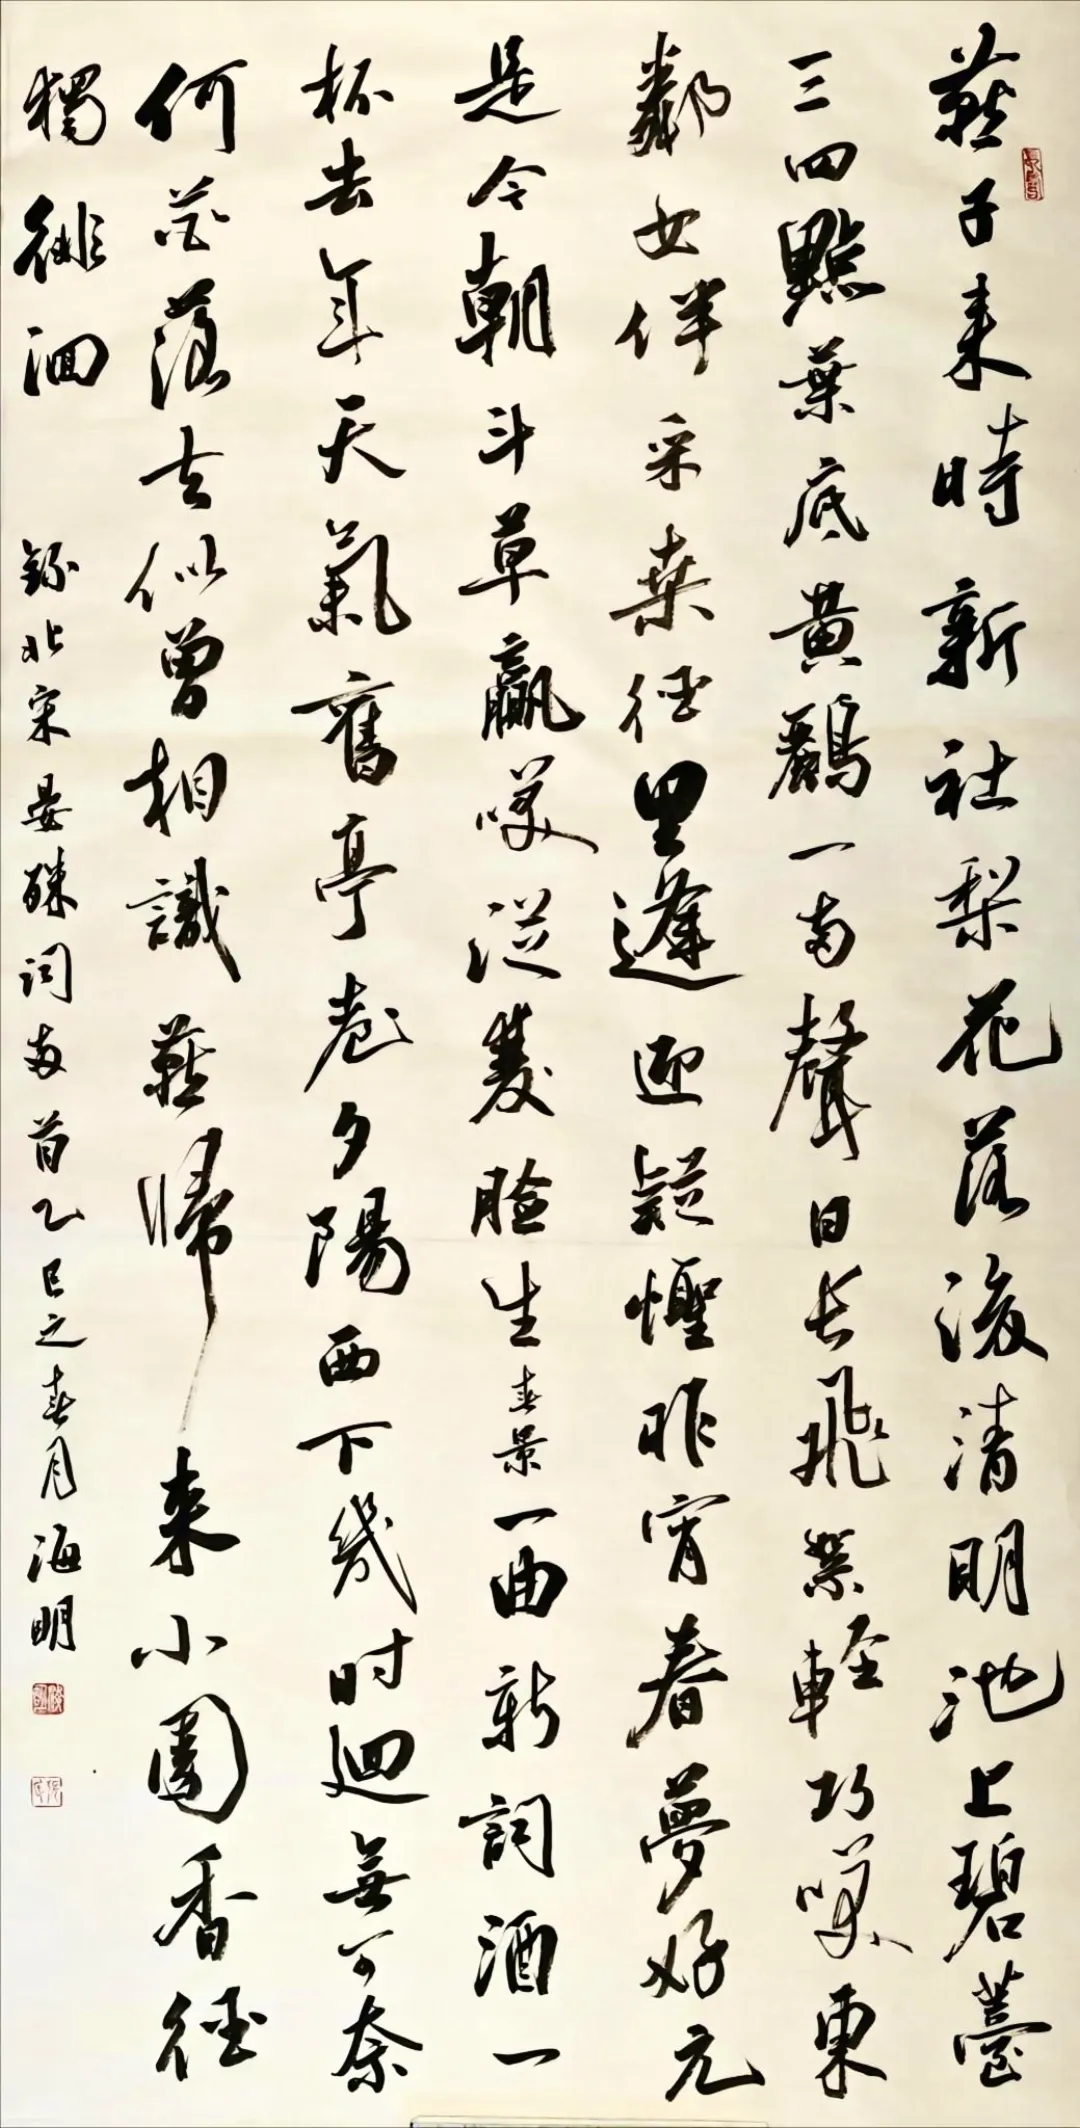 燕子来時新社梨花落後清明池上碧薹
三四點葉底黄鸝一两聲日长飛絮輕巧笑東
鄰女伴采桑徑里逢迎疑怪昨宵春夢好元
是今朝斗草赢笑從雙臉生春景一曲新詞酒一
杯去年天氣舊亭臺夕陽西下幾时迴無可奈
何花落去似曾相識燕歸来小園香徑
獨徘徊
錄北宋晏殊词两首乙巳之春月海明